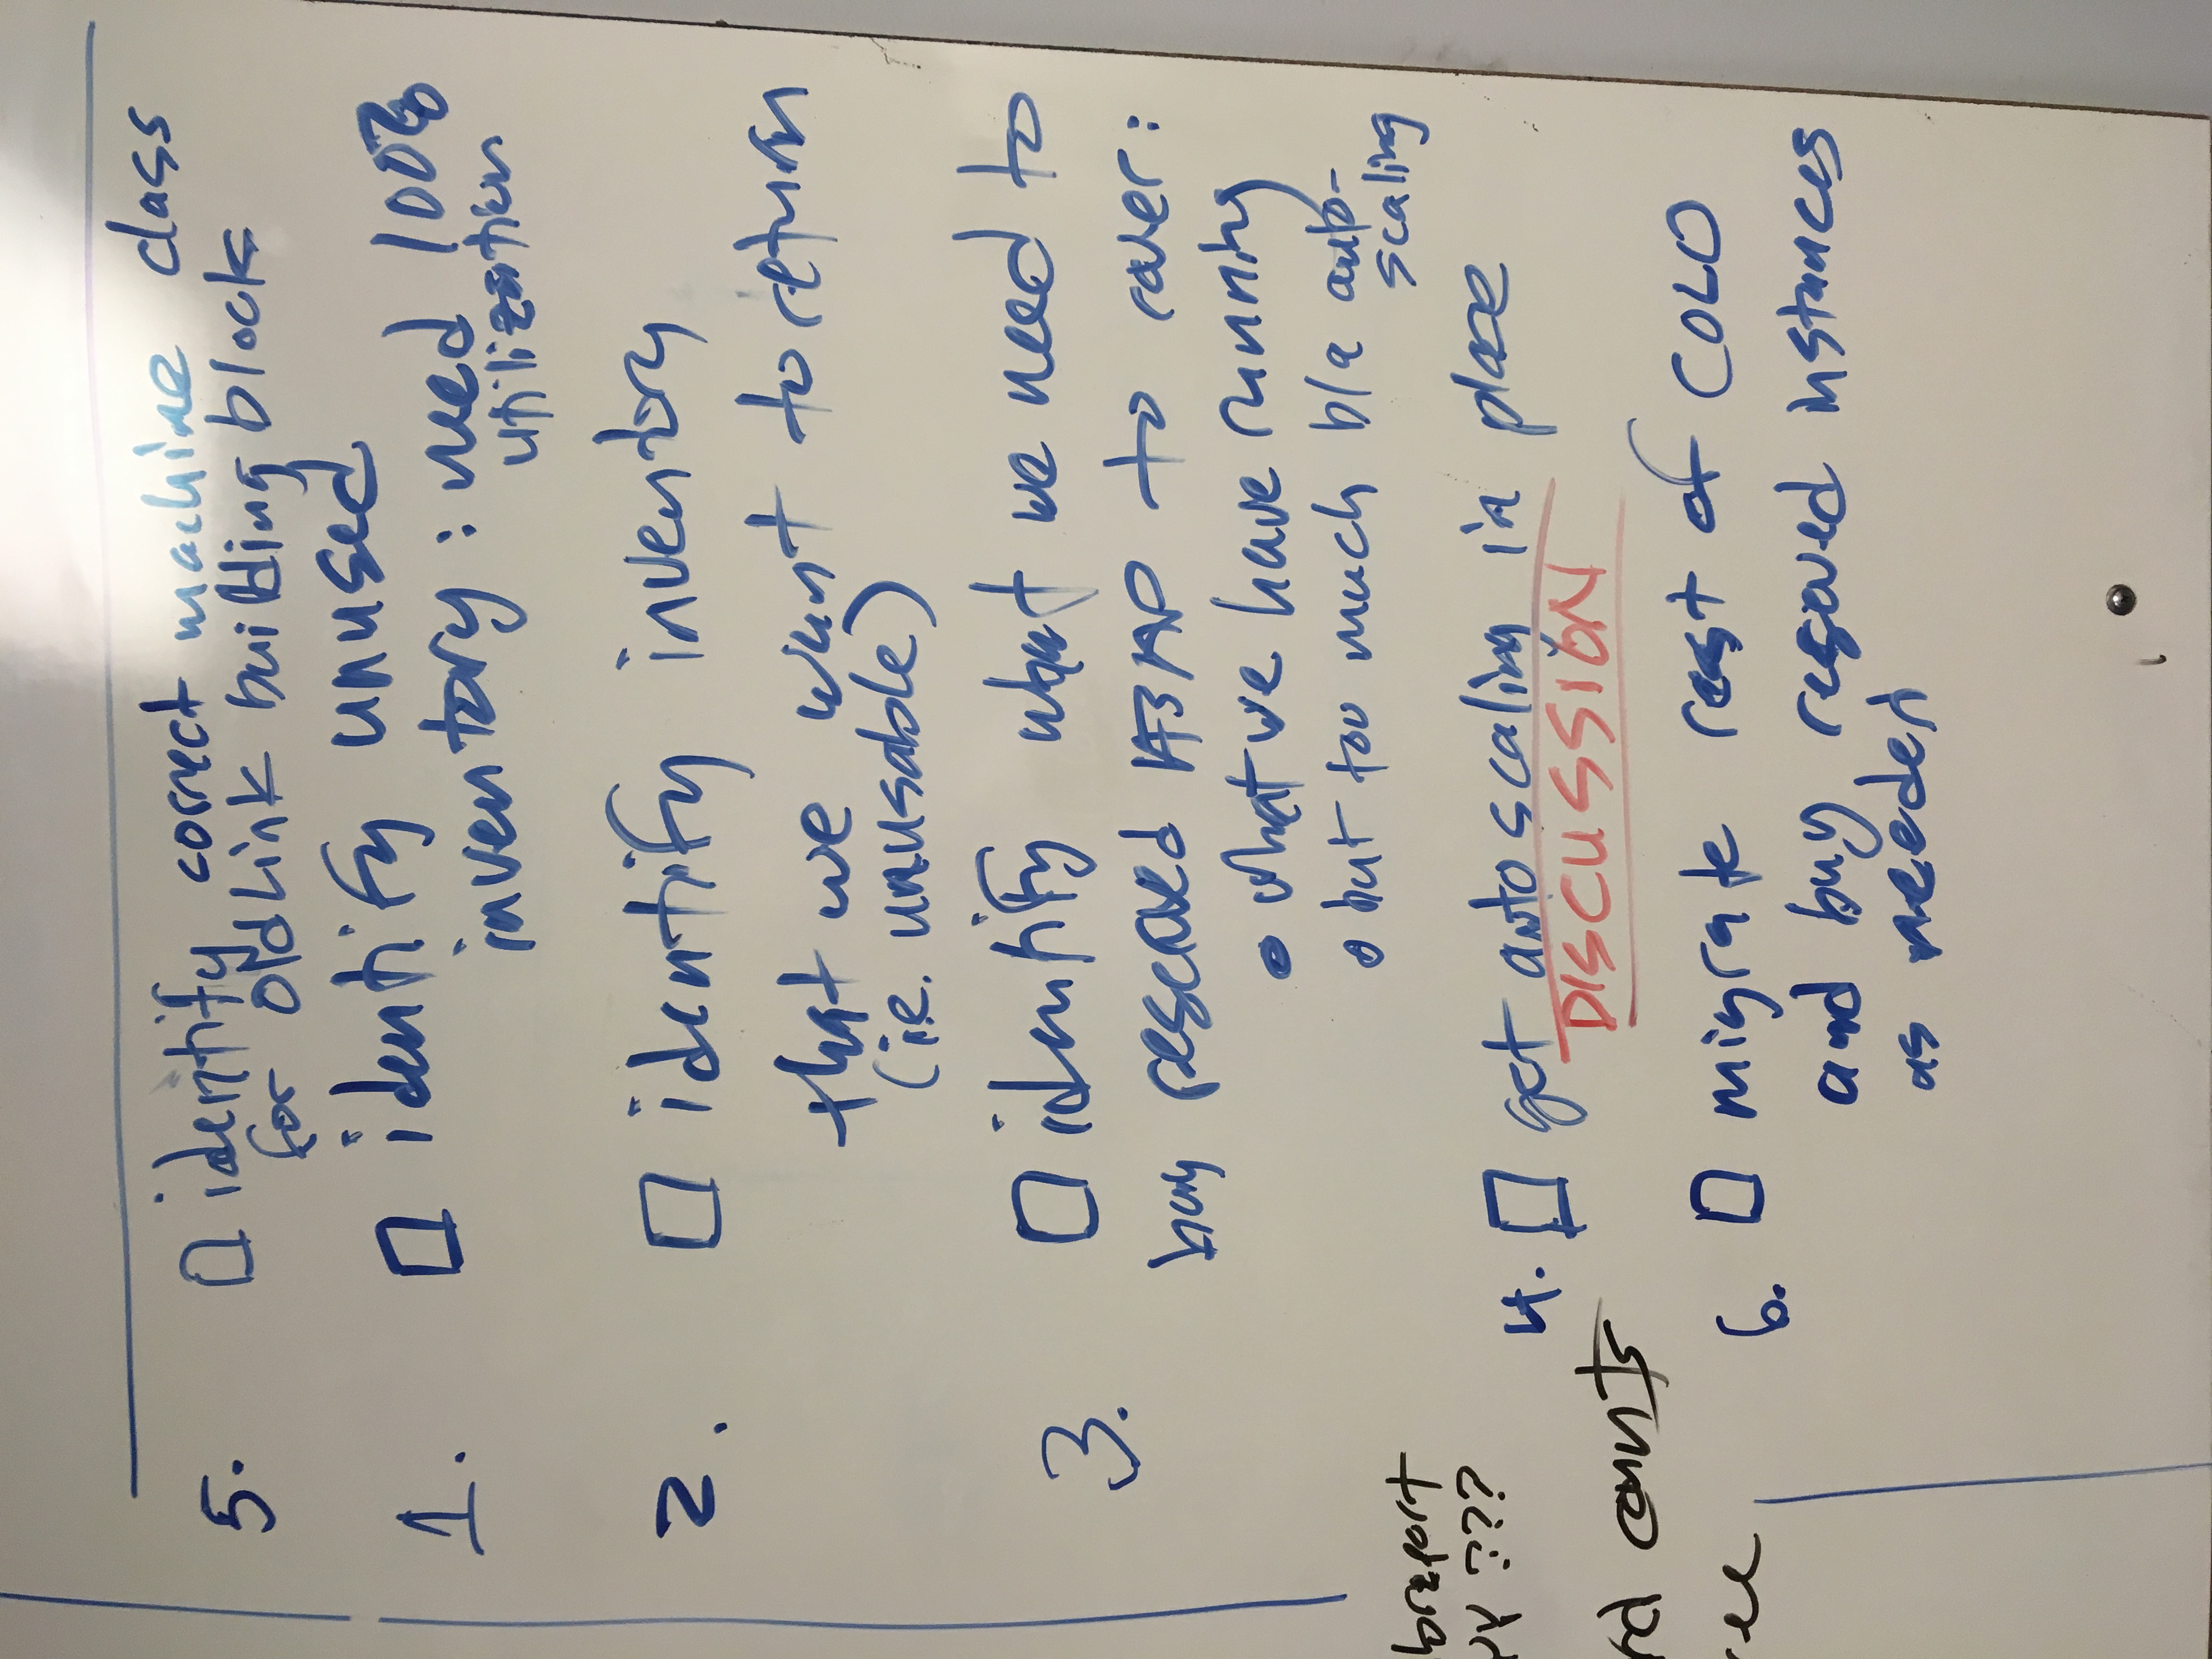 5. identify correct machine class
for oldLink building block
1. identify unused
inventory: need 100%
utilization
2. identify inventory
that we want to return
(i.e. unusable)
3. identify what we need to
buy reserved ASAP to cover:
o what we have running
o but too much b/c auto-
scaling
4. get autoscaling in place
DISCUSSION
6. migrate rest of COLO
and buy reserved instances
as needed